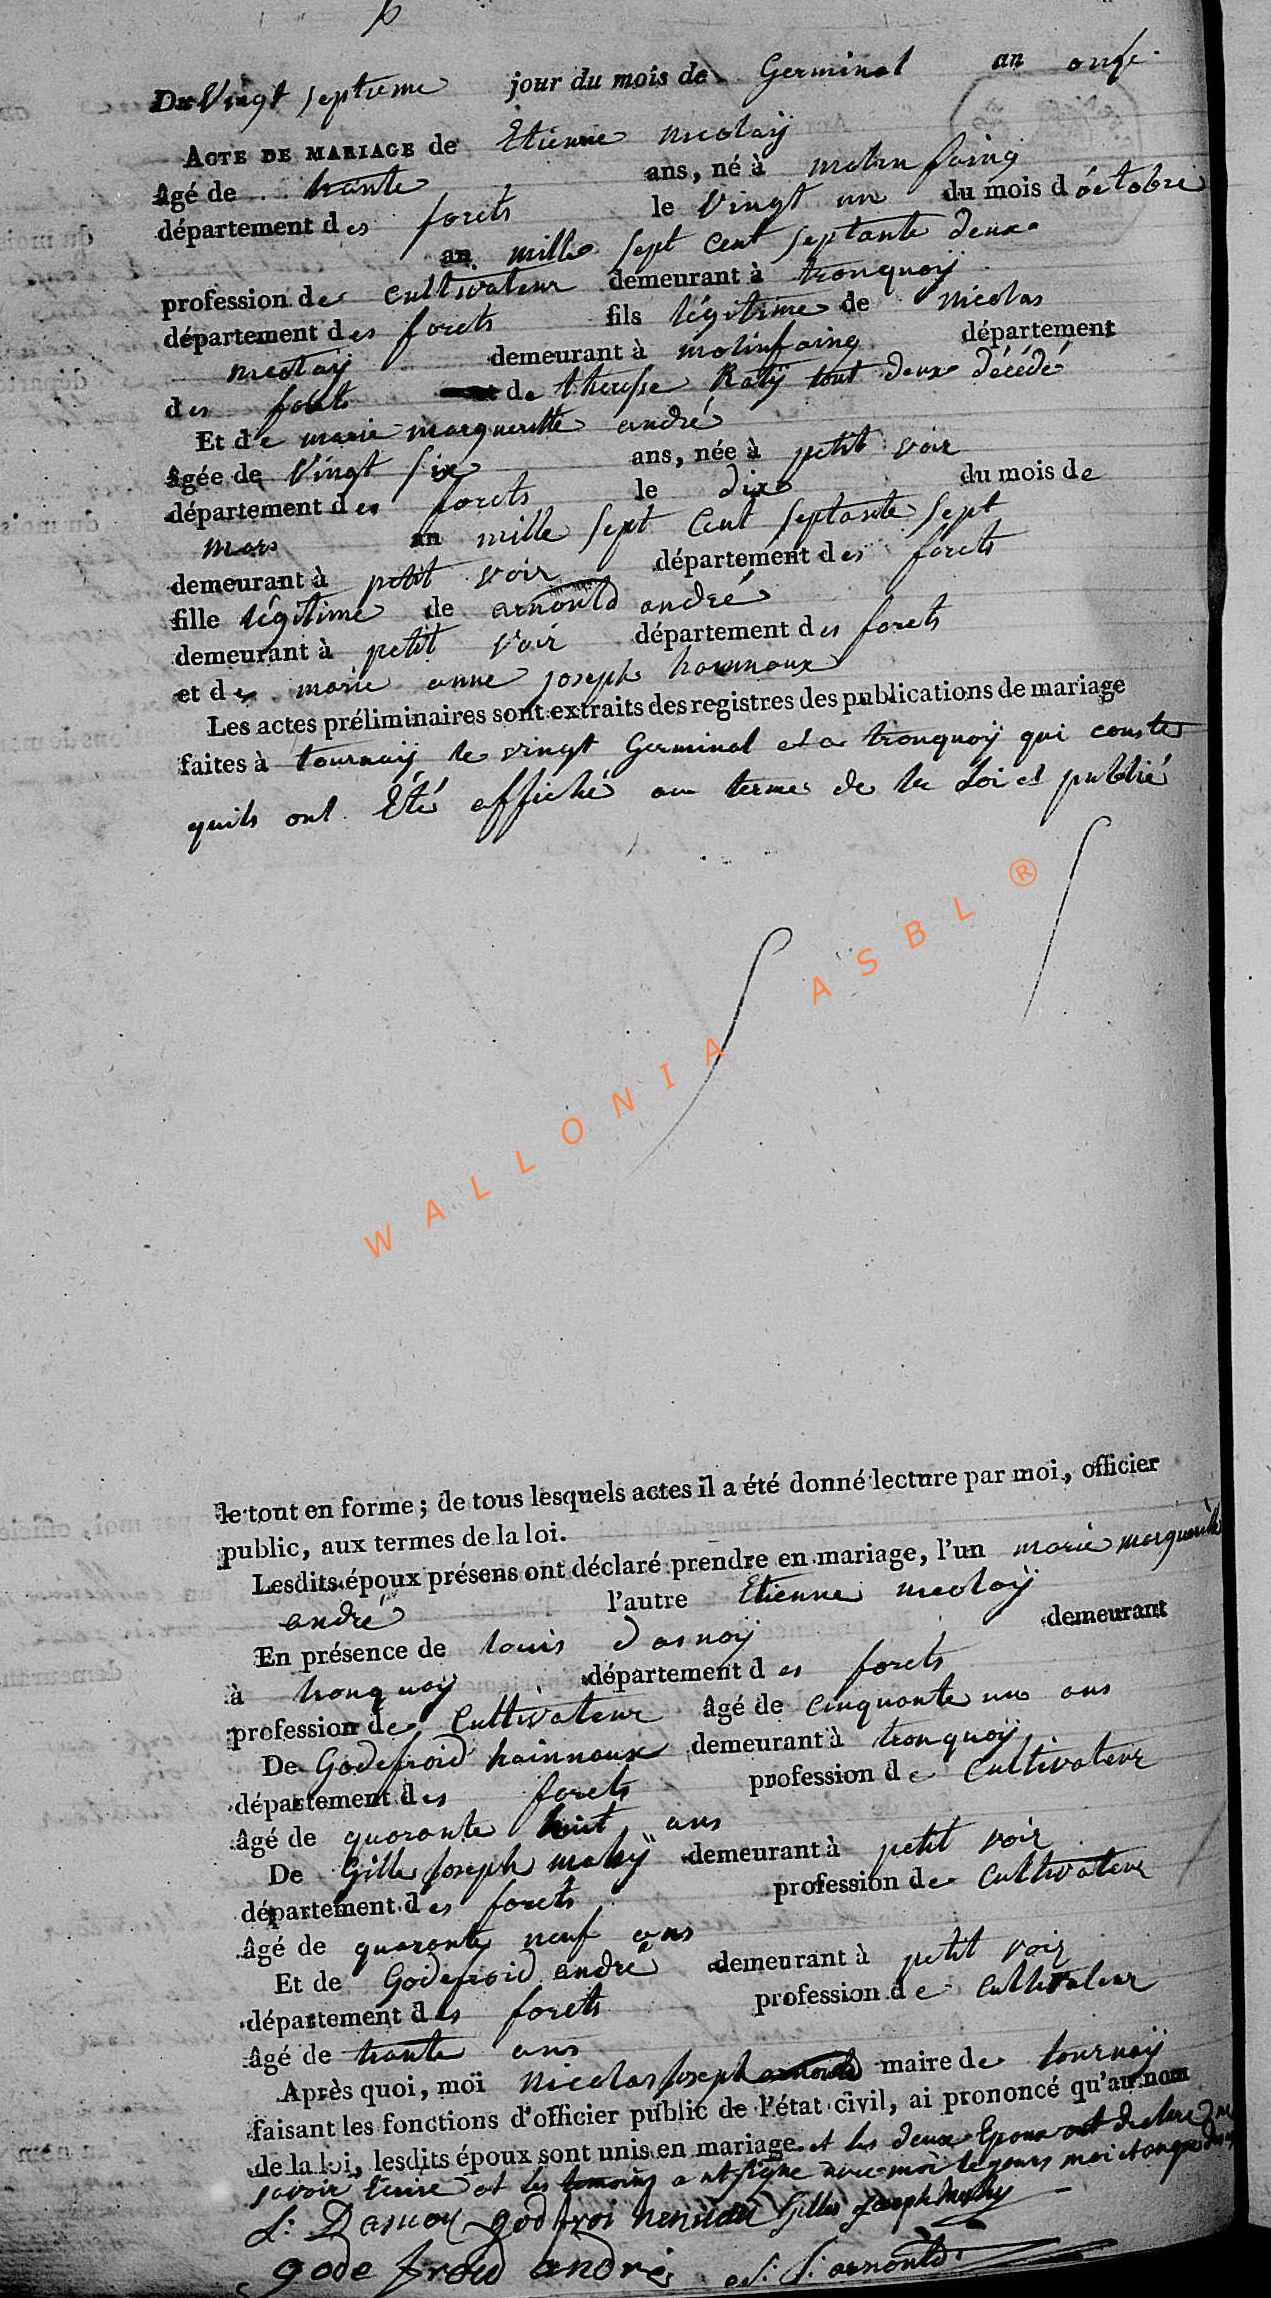 6
Du Vingt septieme jour du mois de Germinal an onze
ACTE DE MARIAGE de Etienne nicolaÿ
âgé de trante ans, né à molinfaing
département des forets le vingt un du mois d'octobre
an mille sept cent septante deux
profession de cultivateur demeurant à tronquoÿ
département des forets fils légitime de nicolas
nicolaÿ demeurant à molinfaing département
des forets de therese Ratÿ tout deux décédé
Et de marie margueritte andré
âgée de vingt six ans, née à petit voir
département des forets le dix du mois de
mars an mille sept cent septante sept
demeurant à petit voir département des forets
fille légitime de arnould andré
demeurant à petit voir département des forets
et de marie anne joseph hainnaux
Les actes préliminaires sont extraits des registres des publications de mariage
faites à tournaÿ le vingt Germinal et a tronquoÿ qui conste
quils ont Eté affiché au terme de la Loi et publié
WALLONIA ASBL ®
le tout en forme ; de tous lesquels actes il a été donné lecture par moi, officier
public, aux termes de la loi.
Lesdits époux présens ont déclaré prendre en mariage, l'un marie margueritte
andré l'autre Etienne nicolaÿ
En présence de louis dasnoÿ demeurant
à tronquoÿ département des forets
profession de Cultivateur âgé de cinquante un ans
De Godefroid hainnaux demeurant à tronquoÿ
département des forets profession de Cultivateur
âgé de quarante huit ans
De Gille Joseph mahÿ demeurant à petit voir
département des forets profession de Cultivateur
âgé de quarante neuf ans
Et de Godefroid andré demeurant à petit voir
département des forets profession de Cultivateur
âgé de trante ans
Après quoi, moi Nicolas Joseph arnould maire de tournaÿ
faisant les fonctions d'officier public de l'état civil, ai prononcé qu'au nom
de la loi, lesdits époux sont unis en mariage et les deux Epoux ont declaré ne
savoir Ecrire et les temoins ont signe avec moi le jours moi et an que dessus
L: Dasnoy godfroi Gilles Joseph Mahy
gode froid andré N: J: arnould